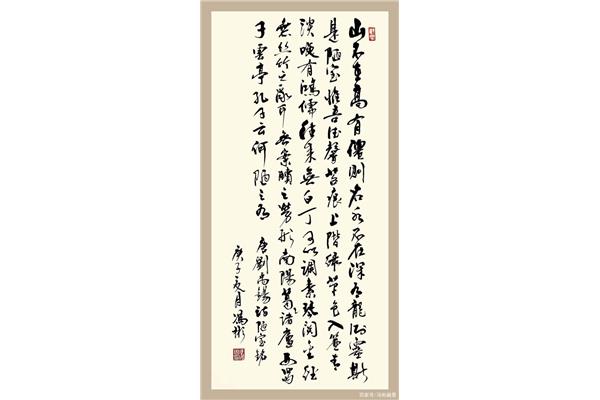 山不在高有僊則名水不在深有龍則靈斯
是陋室惟吾德馨苔痕上階綠草色入簾青
談笑有鴻儒往來無白丁可以調素琴閱金經
無絲竹之亂耳無案牘之勞形南陽葛諸廬西蜀
子雲亭孔子云何陋之有
唐劉禹錫詩陋室銘
庚子夏月馮彬